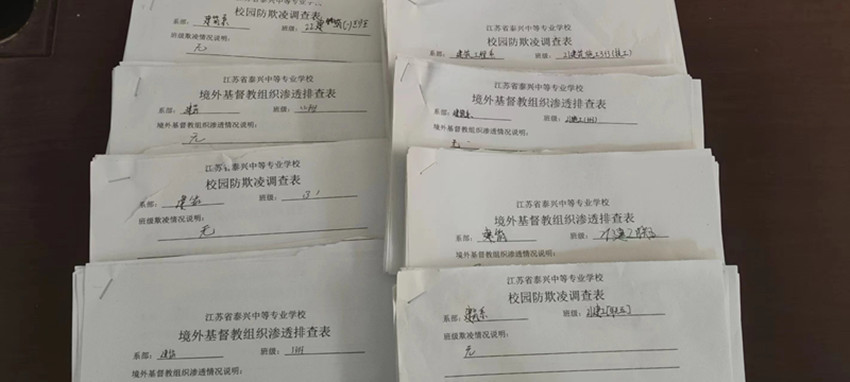 江苏省泰兴中等专业学校
校园防欺凌调查表
系部：建筑系 班级：
班级欺凌情况说明：
无
江苏省泰兴中等专业学校
境外基督教组织渗透排查表
系部：建筑 班级：
境外基督教组织渗透情况说明：
无
江苏省泰兴中等专业学校
校园防欺凌调查表
系部：建筑 班级：
班级欺凌情况说明：
无
江苏省泰兴中等专业学校
境外基督教组织渗透排查表
系部：建筑 班级：
境外基督教组织渗透情况说明：
江苏省泰兴中等专业学校
校园防欺凌调查表
系部：建筑工程系 班级：
班级欺凌情况说明：
江苏省泰兴中等专业学校
境外基督教组织渗透排查表
系部：建筑系 班级：
境外基督教组织渗透情况说明：
江苏省泰兴中等专业学校
境外基督教组织渗透排查表
系部：建筑 班级：
境外基督教组织渗透情况说明：
江苏省泰兴中等专业学校
校园防欺凌调查表
系部：建筑系 班级：
班级欺凌情况说明：
无